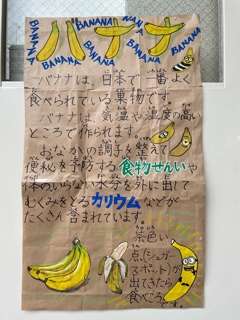 BANANA BANANA BANANA BANANA
バナナ
BANANA BANANA BANANA
バナナは、日本で一番よく
食べられている果物です。
バナナは、気温や湿度の高い
ところで作られます。
おなかの調子を整えて
便秘を予防する食物せんいや
体のいらない水分を外に出して
むくみをとるカリウムなどが
たくさん含まれています。
茶色い
点(シュガー
スポット)が
出てきたら
食べごろ
です。